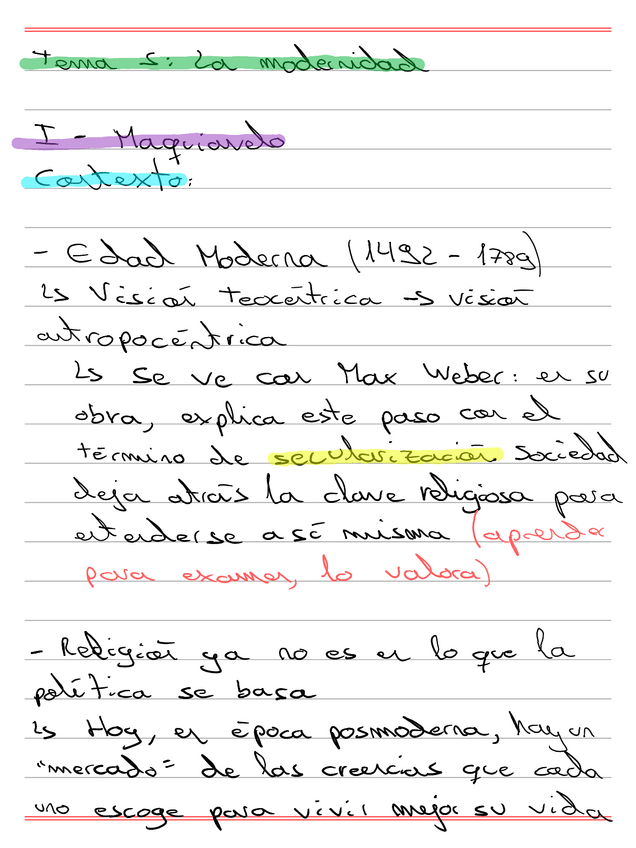 Tema 5: La modernidad
I - Maquiavelo
Contexto:
- Edad Moderna (1492 - 1789)
↳ Visión teocéntrica → visión
antropocéntrica
↳ Se ve con Max Weber: en su
obra, explica este paso con el
término de secularización Sociedad
deja atrás la clave religiosa para
entenderse a sí misma (aprender
para examen, lo valora)
- Religión ya no es en lo que la
política se basa
↳ Hoy, en época posmoderna, hay un
"mercado" de las creencias que cada
uno escoge para vivir mejor su vida